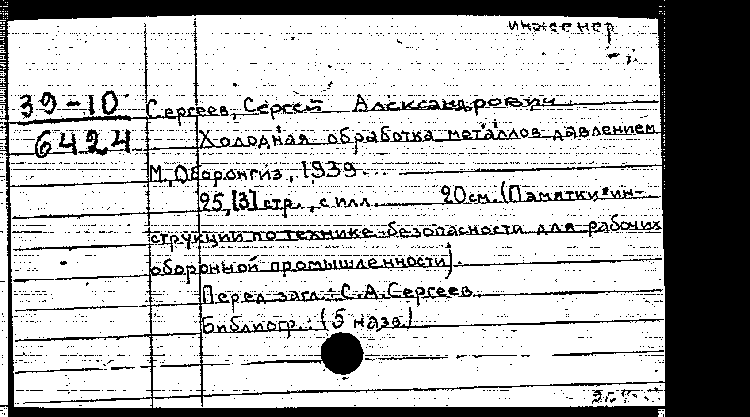 инженер
39-10
6424
Сергеев, Сергей Александрович.
Холодная обработка металлов давлением
М., Оборонгиз, 1939.
25, [3] стр., с илл. 20 см. (Памятки-ин-
струкции по технике безопасности для рабочих
оборонной промышленности).
Перед загл.: С.А. Сергеев.
Библиогр.: (5 назв.)